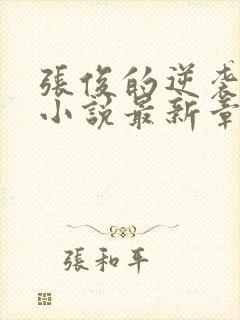 張俊的逆袭
小說最新章
張和平